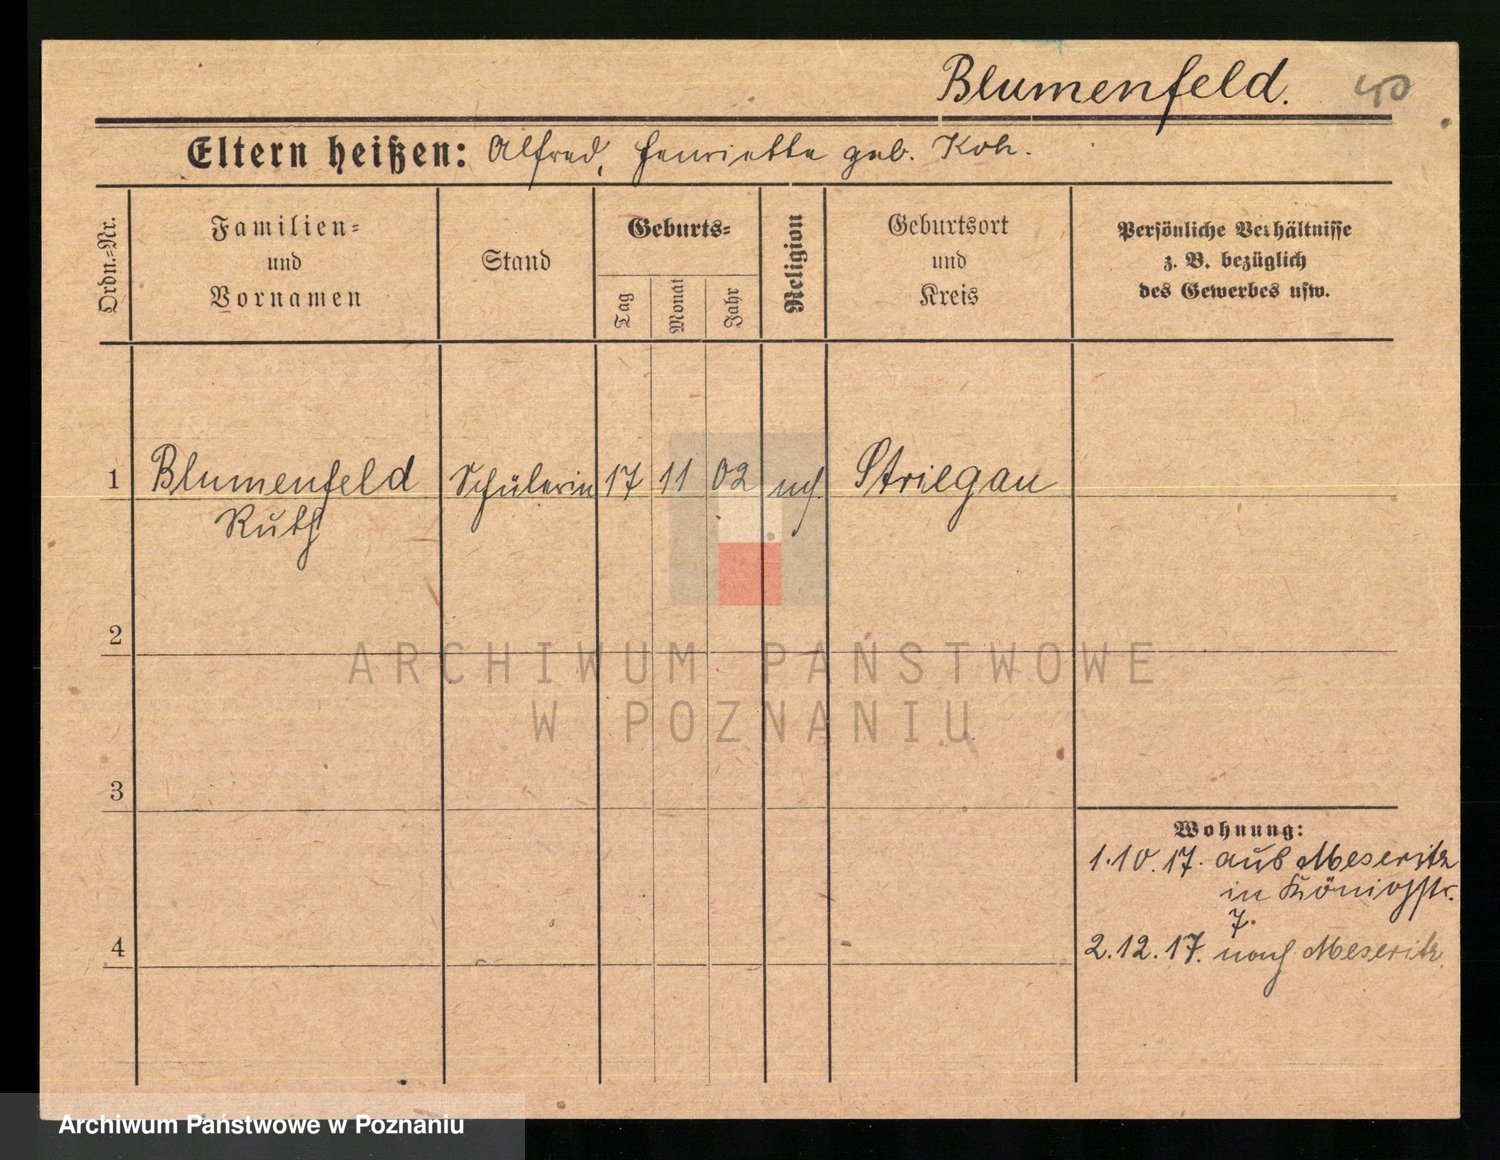 Blumenfeld. 50
Eltern heißen: Alfred, Henriette geb.
Ordn.-Nr.
Familien=
und
Vornamen
Stand
Geburts=
Tag
Monat
Jahr
Religion
Geburtsort
und
Kreis
Persönliche Verhältnisse
z. B. bezüglich
des Gewerbes usw.
1 Blumenfeld Schülerin 17 11 02 Striegau
Ruth
2
3
4
Wohnung:
1.10.17. aus Meseritz
in Königstr.
7.
2.12.17. nach Meseritz.
ARCHIWUM PAŃSTWOWE
W POZNANIU
Archiwum Państwowe w Poznaniu